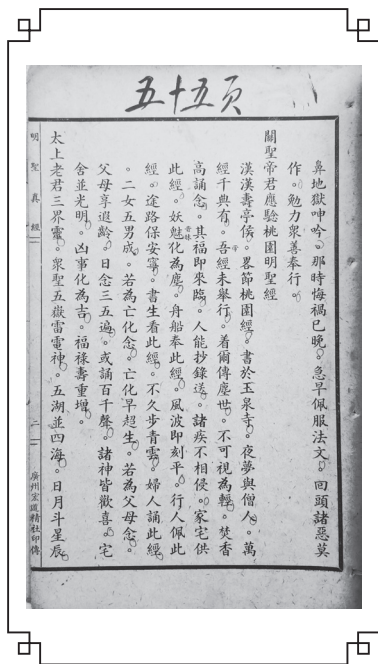 五十五頁
鼻地獄呻吟。那時悔禍已晚。急早佩服法文。回頭諸惡莫
作。勉力衆善奉行。
關聖帝君應驗桃園明聖經
漢漢壽亭侯。畧節桃園經。書於玉泉寺。夜夢與僧人。萬
經千典有。吾經未舉行。着爾傳塵世。不可視為輕。焚香
高誦念。其福即來臨。人能抄錄送。諸疾不相侵。家宅供
此經。妖魅化為塵。舟船奉此經。風波即刻平。行人佩此
經。途路保安寧。書生看此經。不久步青雲。婦人誦此經
。二女五男成。若為亡化念。亡化早超生。若為父母念。
父母享遐齡。日念三五遍。或誦百千聲。諸神皆歡喜。宅
舍並光明。凶事化為吉。福祿壽重增。
太上老君三界靈。衆聖五嶽雷電神。五湖並四海。日月斗星辰。
明聖真經
二
廣州宏道精社印傳